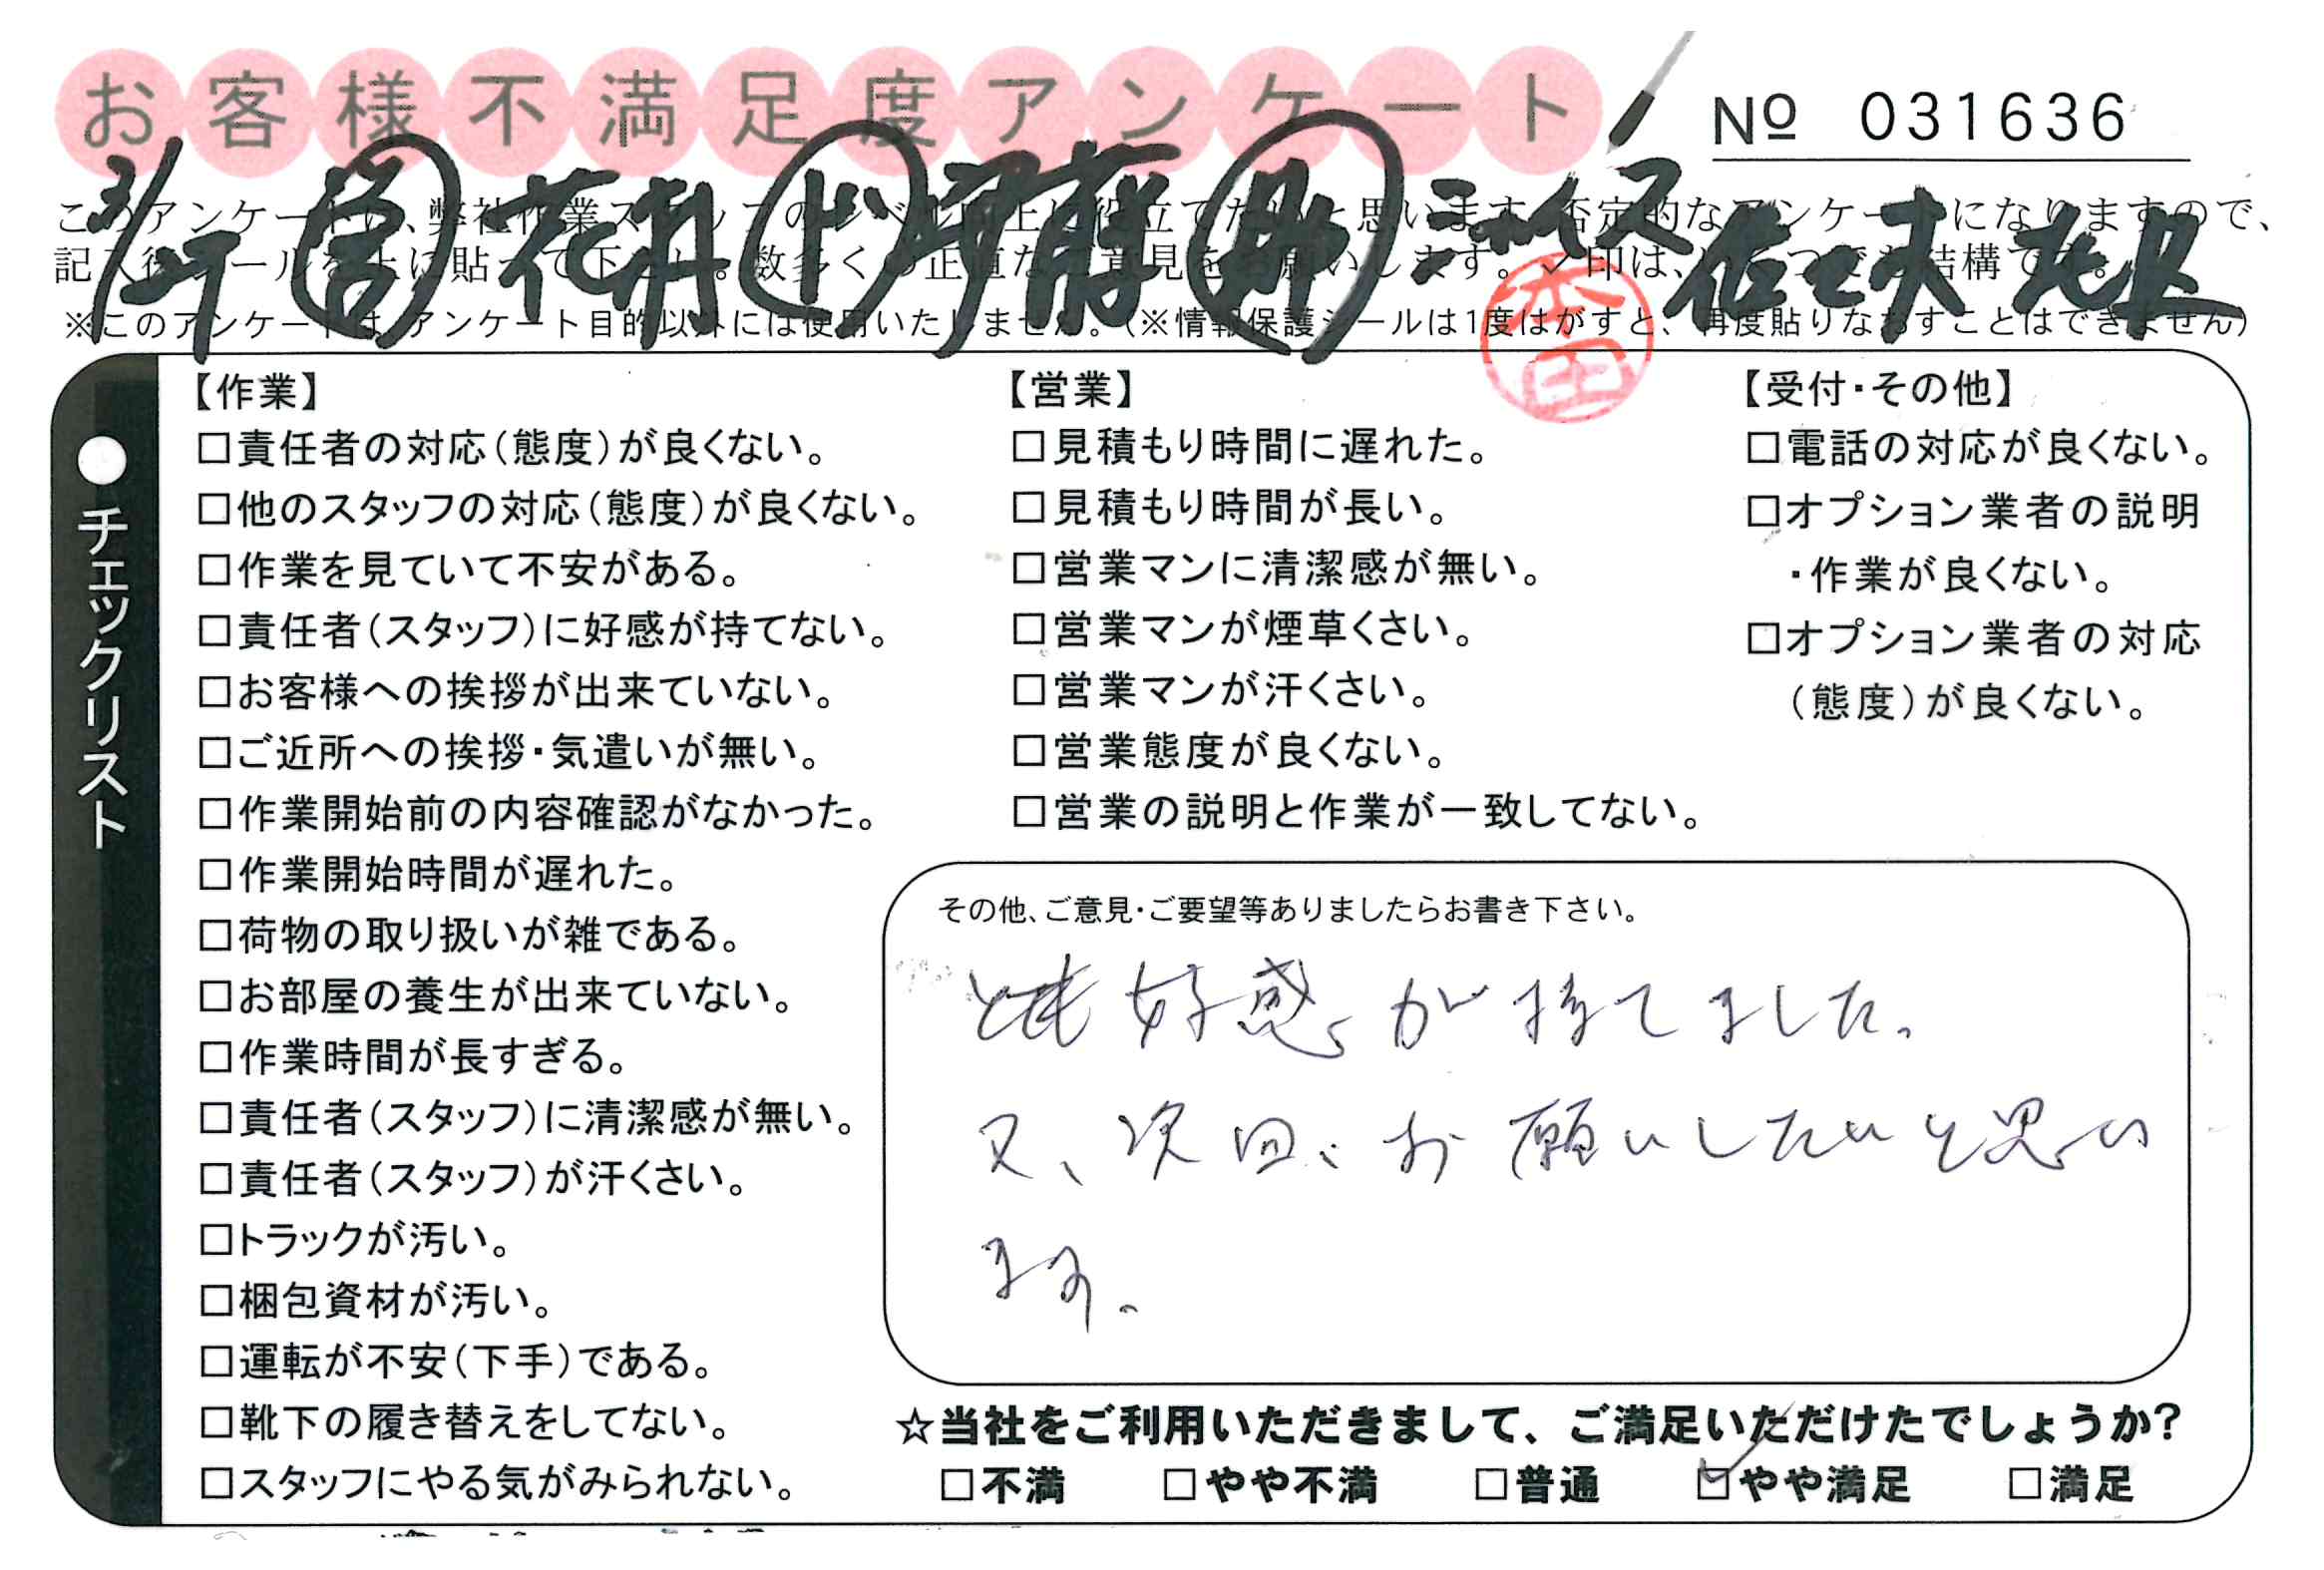 お客様不満足度アンケート
№ 031636
このアンケートは、弊社作業スタッフのレベル向上に役立てたいと思います。否定的なアンケートになりますので、
記入後シールを上に貼って下さい。数多くの正直なご意見をお願いします。✓印は、いくつでも結構です。
※このアンケートは、アンケート目的以外には使用いたしません。(※情報保護シールは1度はがすと、再度貼りなおすことはできません)
●チェックリスト
【作業】
□責任者の対応(態度)が良くない。
□他のスタッフの対応(態度)が良くない。
□作業を見ていて不安がある。
□責任者(スタッフ)に好感が持てない。
□お客様への挨拶が出来ていない。
□ご近所への挨拶・気遣いが無い。
□作業開始前の内容確認がなかった。
□作業開始時間が遅れた。
□荷物の取り扱いが雑である。
□お部屋の養生が出来ていない。
□作業時間が長すぎる。
□責任者(スタッフ)に清潔感が無い。
□責任者(スタッフ)が汗くさい。
□トラックが汚い。
□梱包資材が汚い。
□運転が不安(下手)である。
□靴下の履き替えをしてない。
□スタッフにやる気がみられない。
【営業】
□見積もり時間に遅れた。
□見積もり時間が長い。
□営業マンに清潔感が無い。
□営業マンが煙草くさい。
□営業マンが汗くさい。
□営業態度が良くない。
□営業の説明と作業が一致してない。
【受付・その他】
□電話の対応が良くない。
□オプション業者の説明
・作業が良くない。
□オプション業者の対応
(態度)が良くない。
その他、ご意見・ご要望等ありましたらお書き下さい。
とても好感が持てました。
又、次回、お願いしたいと思い
ます。
☆当社をご利用いただきまして、ご満足いただけたでしょうか?
□不満 □やや不満 □普通 ☑やや満足 □満足